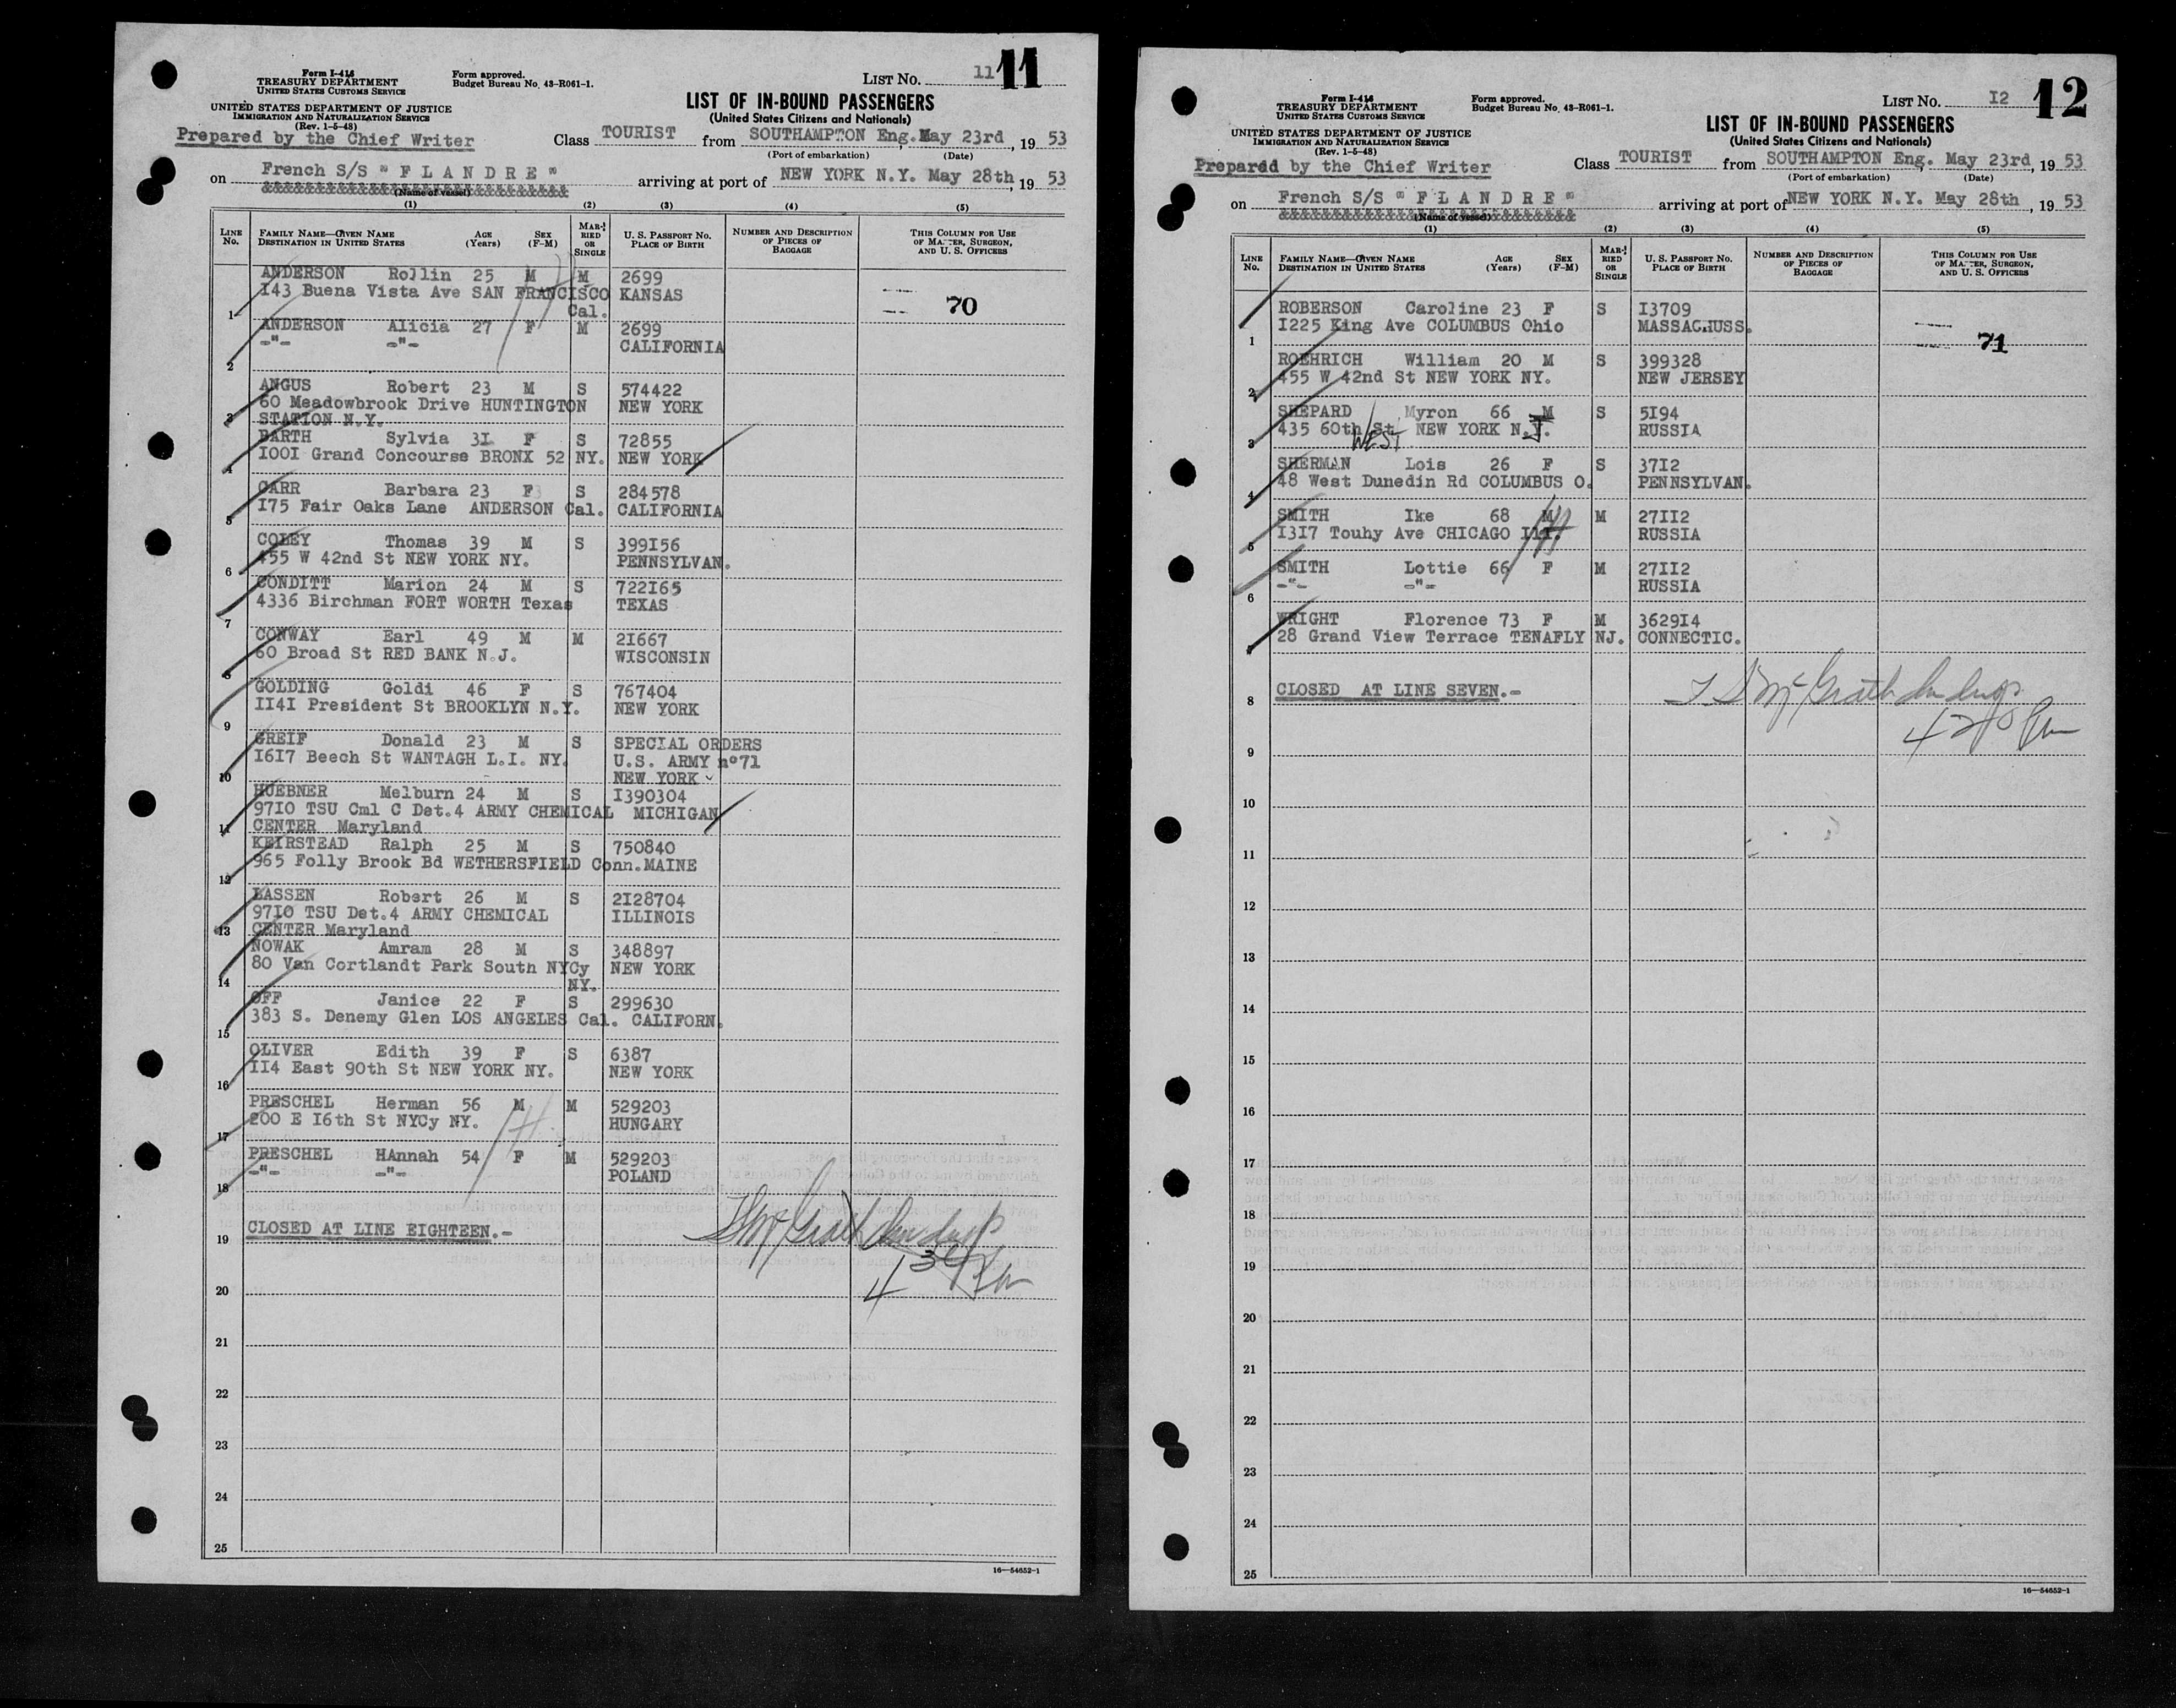 Form I-418
TREASURY DEPARTMENT
UNITED STATES CUSTOMS SERVICE
Form approved.
Budget Bureau No. 43-R061-1.
LIST NO. 11 11
UNITED STATES DEPARTMENT OF JUSTICE
IMMIGRATION AND NATURALIZATION SERVICE
(Rev. 1-5-48)
LIST OF IN-BOUND PASSENGERS
(United States Citizens and Nationals)
Prepared by the Chief Writer
Class TOURIST from SOUTHAMPTON Eng. May 23rd, 19 53
(Port of embarkation) (Date)
on French S/S " F L A N D R E "
(Name of vessel)
arriving at port of NEW YORK N.Y. May 28th, 19 53
(1) (2) (3) (4) (5)
LINE No. FAMILY NAME—GIVEN NAME DESTINATION IN UNITED STATES AGE (Years) SEX (F-M) MARRIED OR SINGLE U. S. PASSPORT NO. PLACE OF BIRTH NUMBER AND DESCRIPTION OF PIECES OF BAGGAGE THIS COLUMN FOR USE OF MASTER, SURGEON, AND U. S. OFFICERS
ANDERSON Rollin 25 M M 2699
I43 Buena Vista Ave SAN FRANCISCO KANSAS
1 Cal. 70
ANDERSON Alicia 27 F M 2699
-"- -"- CALIFORNIA
2
ANGUS Robert 23 M S 574422
60 Meadowbrook Drive HUNTINGTON NEW YORK
3 STATION N.Y.
BARTH Sylvia 3I F S 72855
I00I Grand Concourse BRONX 52 NY. NEW YORK
4
CARR Barbara 23 F S 284578
I75 Fair Oaks Lane ANDERSON Cal. CALIFORNIA
5
COLEY Thomas 39 M S 399I56
455 W 42nd St NEW YORK NY. PENNSYLVAN.
6
CONDITT Marion 24 M S 722I65
4336 Birchman FORT WORTH Texas TEXAS
7
CONWAY Earl 49 M M 2I667
60 Broad St RED BANK N.J. WISCONSIN
8
GOLDING Goldi 46 F S 767404
II4I President St BROOKLYN N.Y. NEW YORK
9
GREIF Donald 23 M S SPECIAL ORDERS
I6I7 Beech St WANTAGH L.I. NY. U.S. ARMY n°71
10 NEW YORK
HUEBNER Melburn 24 M S I390304
97I0 TSU Cml C Det.4 ARMY CHEMICAL MICHIGAN
11 CENTER Maryland
KEIRSTEAD Ralph 25 M S 750840
965 Folly Brook Bd WETHERSFIELD Conn. MAINE
12
LASSEN Robert 26 M S 2I28704
97I0 TSU Det.4 ARMY CHEMICAL ILLINOIS
13 CENTER Maryland
NOWAK Amram 28 M S 348897
80 Van Cortlandt Park South NYCy NEW YORK
14 NY.
OFF Janice 22 F S 299630
383 S. Denemy Glen LOS ANGELES Cal. CALIFORN.
15
OLIVER Edith 39 F S 6387
II4 East 90th St NEW YORK NY. NEW YORK
16
PRESCHEL Herman 56 M M 529203
200 E I6th St NYCy NY. HUNGARY
17
PRESCHEL HAnnah 54 F M 529203
-"- -"- POLAND
18
CLOSED AT LINE EIGHTEEN.-
19
20
21
22
23
24
25
16—54652-1
Form I-418
TREASURY DEPARTMENT
UNITED STATES CUSTOMS SERVICE
Form approved.
Budget Bureau No. 43-R061-1.
LIST NO. I2 12
UNITED STATES DEPARTMENT OF JUSTICE
IMMIGRATION AND NATURALIZATION SERVICE
(Rev. 1-5-48)
LIST OF IN-BOUND PASSENGERS
(United States Citizens and Nationals)
Prepared by the Chief Writer
Class TOURIST from SOUTHAMPTON Eng. May 23rd, 19 53
(Port of embarkation) (Date)
on French S/S " F L A N D R E "
(Name of vessel)
arriving at port of NEW YORK N.Y. May 28th, 19 53
(1) (2) (3) (4) (5)
LINE No. FAMILY NAME—GIVEN NAME DESTINATION IN UNITED STATES AGE (Years) SEX (F-M) MARRIED OR SINGLE U. S. PASSPORT NO. PLACE OF BIRTH NUMBER AND DESCRIPTION OF PIECES OF BAGGAGE THIS COLUMN FOR USE OF MASTER, SURGEON, AND U. S. OFFICERS
ROBERSON Caroline 23 F S I3709
I225 King Ave COLUMBUS Ohio MASSACHUSS.
1 71
ROEHRICH William 20 M S 399328
455 W 42nd St NEW YORK NY. NEW JERSEY
2
SHEPARD Myron 66 M S 5I94
435 60th St WEST NEW YORK N.J. RUSSIA
3
SHERMAN Lois 26 F S 37I2
48 West Dunedin Rd COLUMBUS O. PENNSYLVAN.
4
SMITH Ike 68 M M 27II2
I3I7 Touhy Ave CHICAGO Ill. RUSSIA
5
SMITH Lottie 66 F M 27II2
-"- -"- RUSSIA
6
WRIGHT Florence 73 F M 3629I4
28 Grand View Terrace TENAFLY NJ. CONNECTIC.
7
CLOSED AT LINE SEVEN.-
8
9
10
11
12
13
14
15
16
17
18
19
20
21
22
23
24
25
16—54652-1